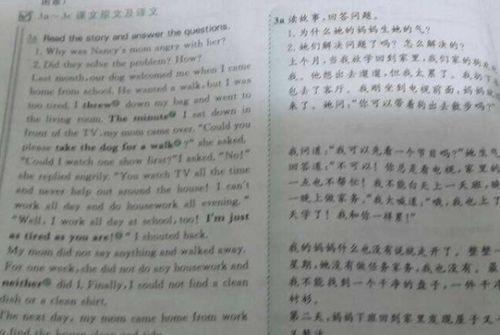 3a~3c 课文原文及译文
3a Read the story and answer the questions.
1. Why was Nancy's mom angry with her?
2. Did they solve the problem? How?
Last month, our dog welcomed me when I came
home from school. He wanted a walk, but I was
too tired. I threw down my bag and went to
the living room. The minute I sat down in
front of the TV, my mom came over. "Could you
please take the dog for a walk?" she asked.
"Could I watch one show first?" I asked. "No!"
she replied angrily. "You watch TV all the time
and never help out around the house! I can't
work all day and do housework all evening."
"Well, I work all day at school, too! I'm just
as tired as you are!" I shouted back.
My mom did not say anything and walked away.
For one week, she did not do any housework and
neither did I. Finally, I could not find a clean
dish or a clean shirt.
The next day, my mom came home from work
to find the house clean and
3a 读故事,回答问题。
1. 为什么她的妈妈生她的气?
2. 她们解决问题了吗?怎么解决的?
上个月,当我放学回到家里,我们家的狗
我。他想出去遛遛,但我太累了。我扔
包去了客厅。我刚坐到电视前面,妈妈
来了。她问:"你可以带着狗出去散步吗?"
我问道:"我可以先看一个节目吗?"她生气
回答道:"不可以!你总是看电视,家里的
一点也不帮忙!我不能白天上一天班,
一晚上做家务。"我大喊道:"哦,我也上了
天学了!我和你一样累!"
我的妈妈什么也没有说就走开了。整整
星期,她没有做任务家务,我也没有。最
我不能找到一个干净的盘子,一件干
衬衫。
第二天,妈妈下班回到家里发现屋子又